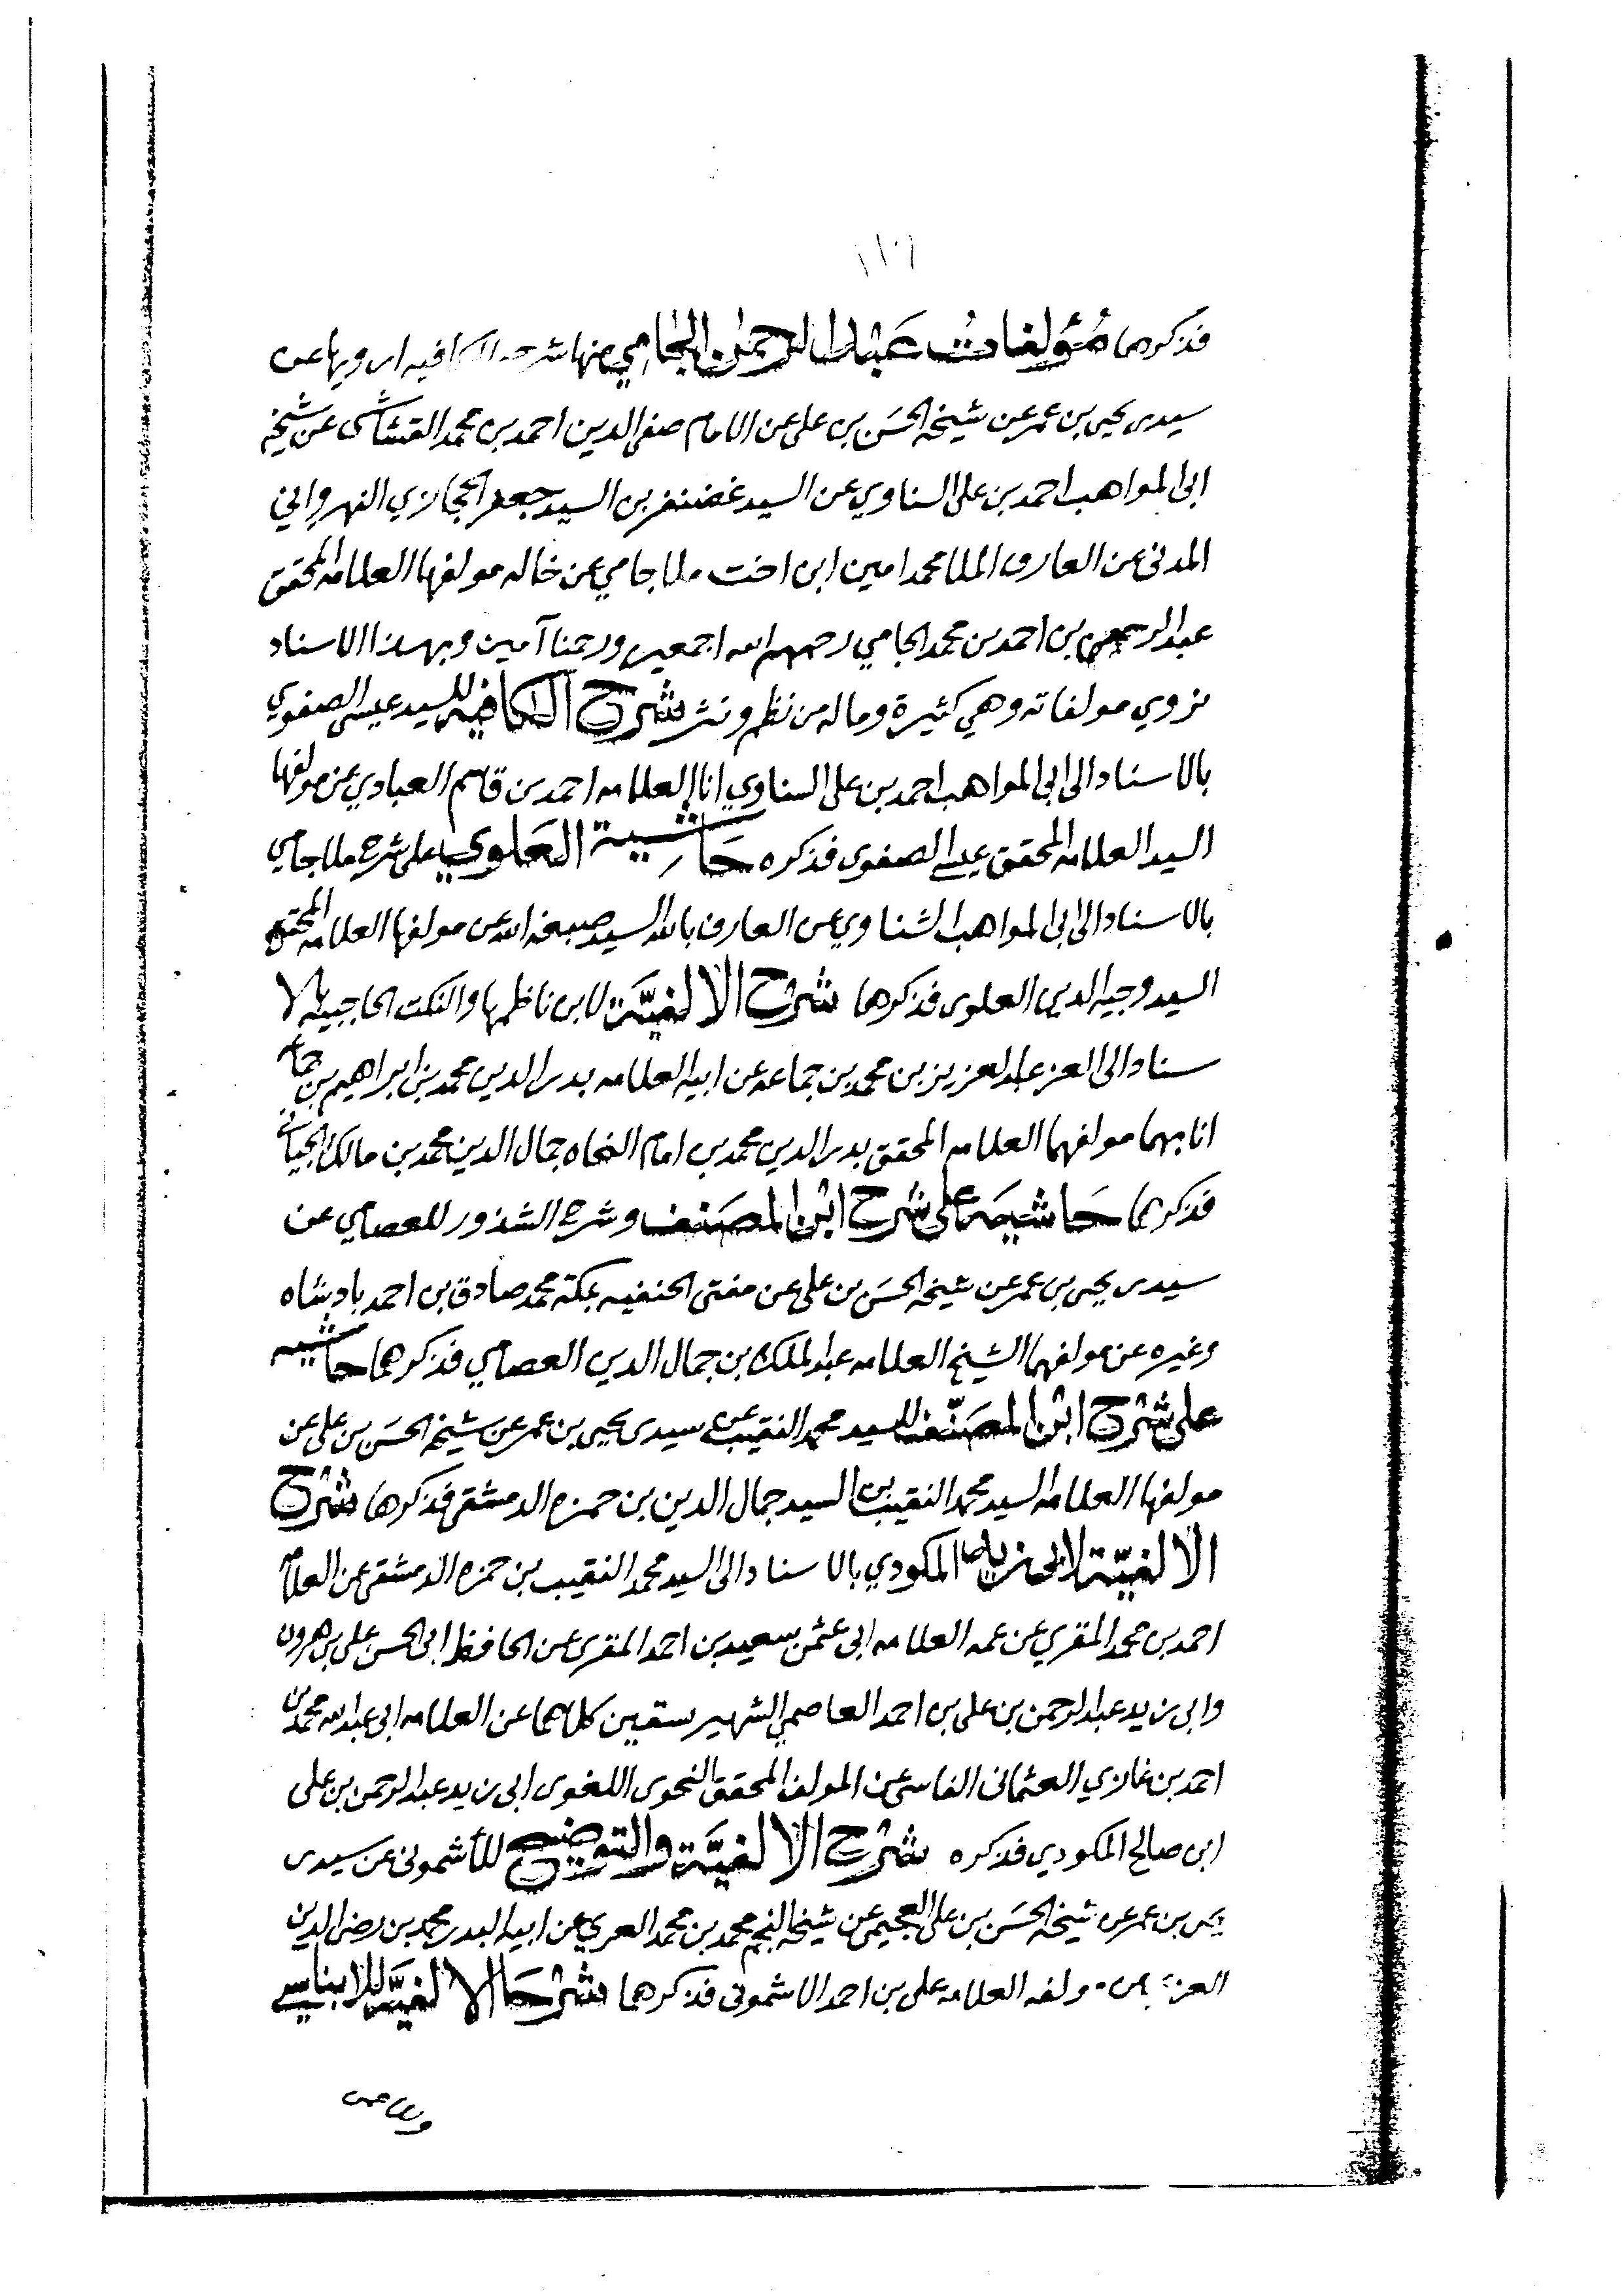 فذكرها مُؤلفاتُ عَبْد الرحمن الجامي منها شرحه الكافيه ارويها عن
سيدى يحيى بن عمر عن شيخه الحسَن بن على عن الامام صفى الدين احمد بن محمد القشاشى عن شيخه
ابى المواهب احمد بن على السناوي عن السيد غضنفر بن السيد جعفر الحجازي النهرواني
المدنى عن العارف الملا محمد امين ابن اخت ملا جامي عن خاله مولفها العلامه المحقق
عبد الرحمن بن احمد بن محمد الجامي رحمهم الله اجمعين ورحمنا آمين وبهذا الاسناد
نروي مولفاته وهي كثيرة وماله من نظم ونثر شرح الكافيه للسيد عيسى الصفوي
بالاسناد الى ابى المواهب احمد بن على السناوي انا العلامه احمد بن قاسم العبادي عن مولفها
السيد العلامه المحقق عيسى الصفوى فذكره حَاشِية العَلوي على شرح ملا جامي
بالاسناد الى ابى المواهب الشناوي عن العارف بالله السيد صبغة الله عن مولفها العلامه المحقق
السيد وجيه الدين العلوى فذكرها شرح الالفيَّة لابن ناظمها والنكت الحاجبيه بالا
سناد الى العز عبد العزيز بن محمد بن جماعه عن ابيه العلامه بدر الدين محمد بن ابراهيم بن جماعه
انا بهما مولفهما العلامه المحقق بدر الدين محمد بن امام النحاه جمال الدين محمد بن مالك الجيانى
فذكرهما حَاشيَه على شرح ابْن المصَنف وشرح الشذور للعصامي عن
سيدى يحيى بن عمر عن شيخه الحسَن بن على عن مفتى الحنفيه بمكة محمد صادق بن احمد بادشاه
وغيره عن مولفهما الشيخ العلامه عبد الملك بن جمال الدين العصامي فذكرهما حاشيه
على شرْح ابْن المصَنّف للسيد محمد النقيب عن سيدى يحيى بن عمر عن شيخه الحسَن بن على عن
مولفها العلامه السيد محمد النقيب بن السيد جمال الدين بن حمزه الدمشقى فذكرها شرْح
الالفيّة لابى زيد المكودي بالاسناد الى السيد محمد النقيب بن حمزه الدمشقى عن العلامه
احمد بن محمد المقري عن عمه العلامه ابى عثمن سعيد بن احمد المقرى عن الحافظ ابى الحسن على بن هرون
وابى زيد عبد الرحمن بن على بن احمد العاصمي الشهير بسقين كلاهما عن العلامه ابى عبد الله محمد بن
احمد بن غازي العثمانى الفاسى عن المولف المحقق النحوى اللغوى ابى زيد عبد الرحمن بن على
ابن صالح المكودي فذكره شرْح الالفيَّة والتوضيح للأشمونى عن سيدى
يحيى بن عمر عن شيخه الحسَن بن على العجيمى عن شيخه النجم محمد بن محمد العربي عن ابيه البدر محمد بن رضى الدين
مولفه العلامه على بن احمد الاشمونى فذكرهما شرْحَا الالفيَّه للابناسي